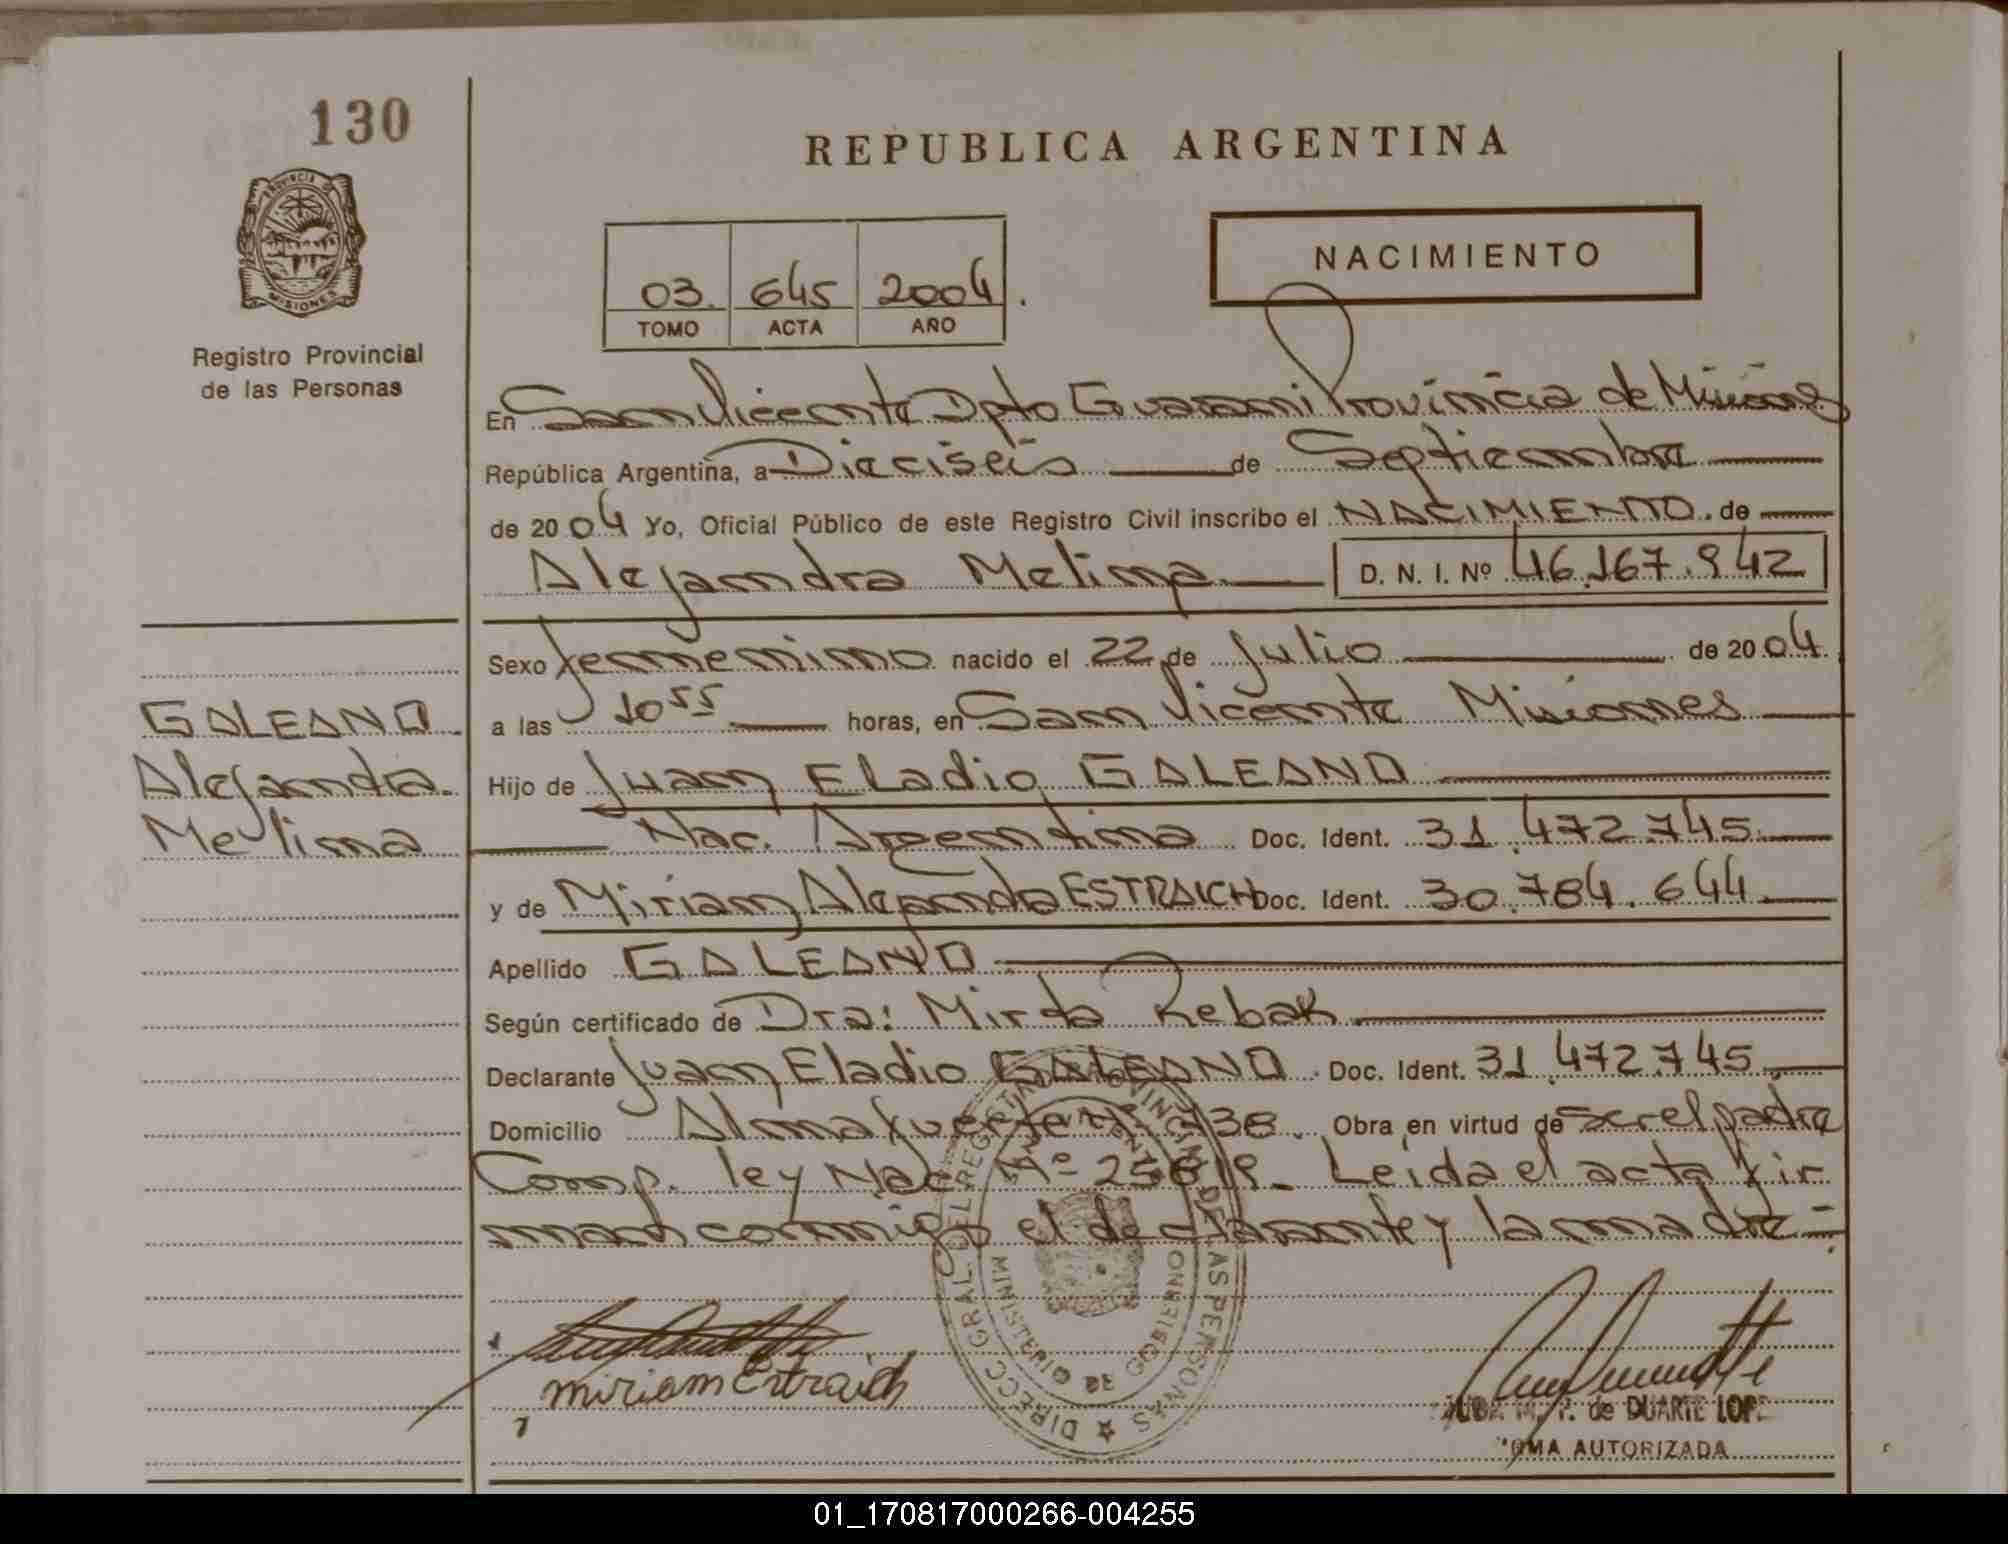 130
REPUBLICA ARGENTINA
PROVINCIA DE
MISIONES
Registro Provincial
de las Personas
03. 645 2004.
TOMO ACTA AÑO
NACIMIENTO
En San Vicente Dpto Guarani Provincia de Misiones
República Argentina, a Dieciseis de Septiembre
de 2004 Yo, Oficial Público de este Registro Civil inscribo el NACIMIENTO. de
Alejandra Melina D. N. I. Nº 46.167.942
Sexo femenino nacido el 22 de Julio de 2004.
a las 10 55 horas, en San Vicente Misiones
GALEANO
Alejandra
Melina
Hijo de Juan Eladio GALEANO
Nac. Argentina Doc. Ident. 31.472.745
y de Miriam Alejandra ESTRAICH Doc. Ident. 30.784.644
Apellido GALEANO
Según certificado de Dra: Mirta Rebak
Declarante Juan Eladio GALEANO Doc. Ident. 31.472.745
Domicilio Almafuerte nº 738. Obra en virtud de ser el padre
Comp. ley Nac Nº 25819. Leida el acta fir
man conmigo el declarante y la madre
DIRECC GRAL DEL REGISTRO PROVINCIAL DE LAS PERSONAS
MINISTERIO DE GOBIERNO
miriam Estraich
M. P. de DUARTE LOPE
AUTORIZADA
01_170817000266-004255